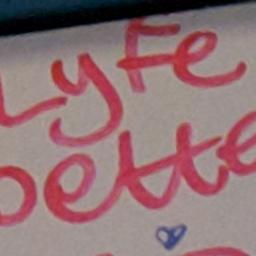 Lyfe
bette